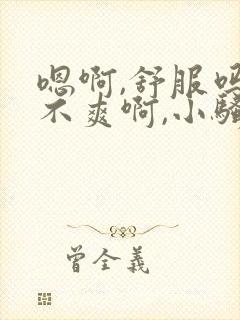 嗯啊,舒服吗
不爽啊,小骚
曾全義